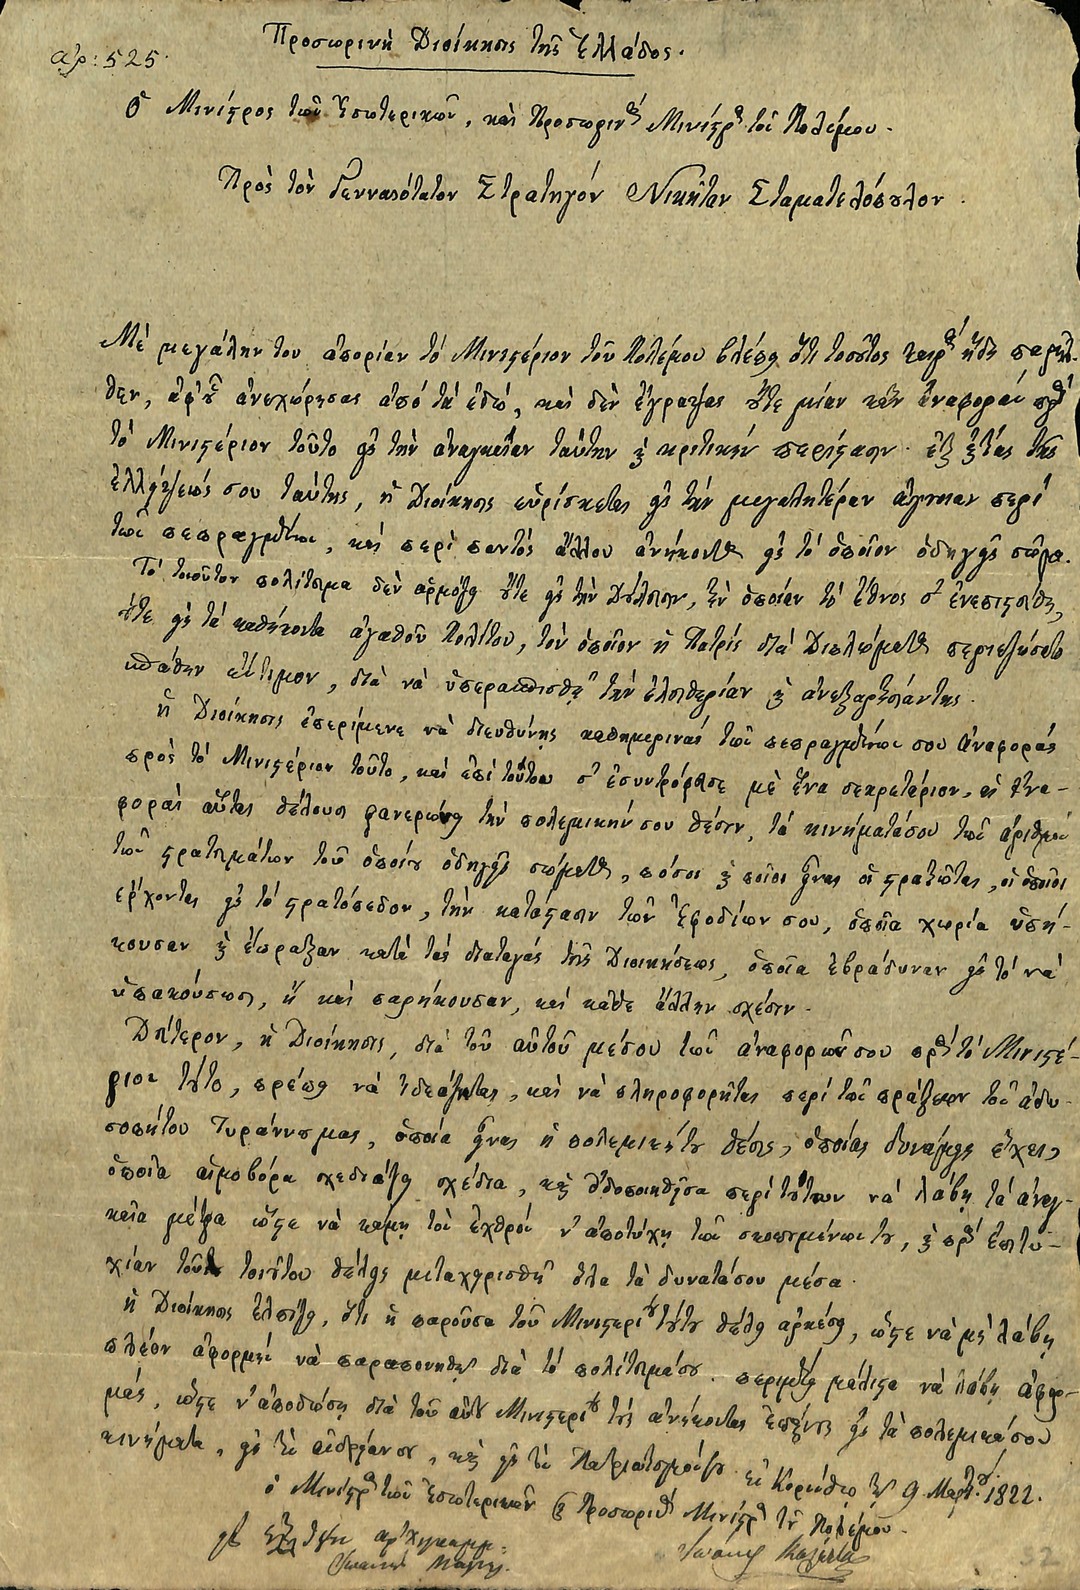 Προσωρινὴ Διοίκησις τῆς Ἑλλάδος.
ἀρ: 525.
Ὁ Μινίστρος τῶν Ἐσωτερικῶν, καὶ Προσωριν. Μινίστρ. τοῦ Πολέμου.
Πρὸς τὸν Γενναιότατον Στρατηγὸν Νικήταν Σταματελόπουλον.
Μὲ μεγάλην του ἀπορίαν τὸ Μινιστέριον τοῦ Πολέμου βλέπει ὅτι τοσοῦτος καιρὸς ἤδη παρῆλ-
θεν, ἀφ' οὗ ἀνεχώρησας ἀπὸ τὰ ἐδῶ, καὶ δὲν ἔγραψας οὔτε μίαν κἂν ἀναφορὰν πρὸς
τὸ Μινιστέριον τοῦτο εἰς τὴν ἀναγκαίαν ταύτην καὶ κριτικὴν περίστασιν. ἐξ αἰτίας τῆς
ἐλλείψεώς σου ταύτης, ἡ Διοίκησις εὑρίσκεται εἰς τὴν μεγαλητέραν ἄγνοιαν περὶ
τῶν πεπραγμένων, καὶ περὶ παντὸς ἄλλου ἀνήκοντος εἰς τὸ ὁποῖον ὁδηγεῖς σῶμα.
Τὸ τοιοῦτον πολίτευμα δὲν ἁρμόζει οὔτε εἰς τὴν δούλευσιν, τὴν ὁποίαν τὸ ἔθνος σ' ἐνεπιστεύθη,
οὔτε εἰς τὰ καθήκοντα ἀγαθοῦ Πολίτου, τὸν ὁποῖον ἡ Πατρὶς διὰ Διπλώματος
ἔντιμον, διὰ νὰ ὑπερασπισθῇ τὴν ἐλευθερίαν καὶ ἀνεξαρτησίαν της.
ἡ Διοίκησις ἐπερίμενε νὰ διευθύνῃς καθημερινὰς τῶν πεπραγμένων σου ἀναφορὰς
πρὸς τὸ Μινιστέριον τοῦτο, καὶ ἐπὶ τούτου σ' ἐσυντρόφευσε μὲ ἕνα σεκρετάριον. αἱ ἀνα-
φοραὶ αὗται θέλουν φανερώνει τὴν πολεμικήν σου θέσιν, τὰ κινήματά σου τῶν ἀριθμὸν
τῶν στρατευμάτων τοῦ ὁποίου ὁδηγεῖς σώματος, πόσοι καὶ ποῖοι εἶναι οἱ στρατιῶται, οἱ ὁποῖοι
ἔρχονται εἰς τὸ στρατόπεδον, τὴν κατάστασιν τῶν ἐφοδίων σου, ὁποῖα χωρία ὑπή-
κουσαν καὶ ἔπραξαν κατὰ τὰς διαταγὰς τῆς Διοικήσεως, ὁποῖα ἐβράδυναν εἰς τὸ νὰ
ὑπακούσωσι, ἢ καὶ παρήκουσαν, καὶ κάθε ἄλλην σχέσιν.
Δεύτερον, ἡ Διοίκησις, διὰ τοῦ αὐτοῦ μέσου τῶν ἀναφορῶν σου πρὸς τὸ Μινιστέ-
ριον τοῦτο, πρέπει νὰ ἰδεάζηται, καὶ νὰ πληροφορῆται περὶ τῶν πράξεων τοῦ ἀδυ-
σωπήτου Τυράννου μας, ὁποία εἶναι ἡ πολεμική του θέσις, ὁποίας δυνάμεις ἔχει,
ὁποῖα αἱμοβόρα σχεδιάζει σχέδια, καὶ εἰδοποιηθεῖσα περὶ τούτων νὰ λάβῃ τὰ ἀναγ-
καῖα μέτρα ὥστε νὰ κάμῃ τὸν ἐχθρὸν ν' ἀποτύχῃ τῶν σκοπουμένων του, καὶ πρὸς ἐπιτυ-
χίαν τοῦ τοιούτου θέλεις μεταχειρισθῆ ὅλα τὰ δυνατά σου μέσα.
ἡ Διοίκησις ἐλπίζει, ὅτι ἡ παροῦσα τοῦ Μινιστερίου τούτου θέλει ἀρκέσει, ὥστε νὰ μὴ λάβῃ
πλέον ἀφορμὴν νὰ παραπονηθῇ διὰ τὸ πολίτευμά σου. περιμένει μάλιστα νὰ λάβῃ ἀφορ-
μάς, ὥστε ν' ἀποδώσῃ διὰ τοῦ αὐτοῦ Μινιστερίου τοὺς ἀνήκοντας ἐπαίνους εἰς τὰ πολεμικά σου
κινήματα, εἰς τὴν ἀνδρείαν σου, καὶ εἰς τὸν Πατριωτισμόν σου. ἐν Κορίνθῳ τῇ 9 Μαρτ. 1822.
ὁ Μινίστρος τῶν Ἐσωτερικῶν καὶ Προσωρινὸς Μινίστρος τοῦ Πολέμου.
Ἰωάννης Κωλέττης